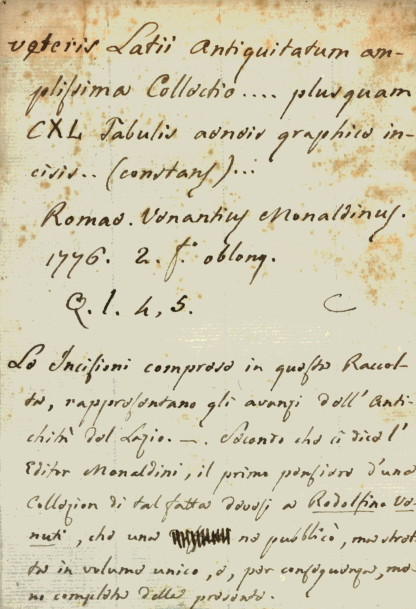 veteris Latii Antiquitatum am-
plissima Collectio .... plusquam
CXL Tabulis aeneis graphice in-
cisis .. (constans) ...
Romae. Venantius Monaldinus.
1776. 2. f.° oblong.
Q. l. 4, 5. C
Le Incisioni comprese in questa Raccol-
ta, rappresentano gli avanzi dell' Anti-
chità del Lazio. —. Secondo che ci dice l'
Editor Monaldini, il primo pensiero d'una
Collezion di tal fatta devesi a Rodolfino Ve-
nuti, che una ne pubblicò, ma
ta in volume unico, e, per conseguenza, me-
no completa della presente.